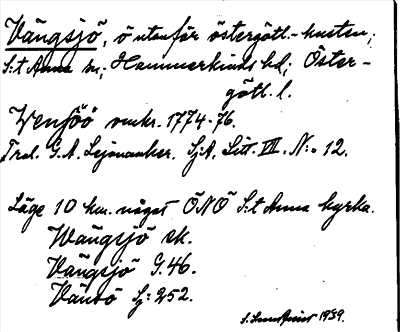 Vängsjö, ö utanför östergötl.-kusten;
S:t Anna sn; Hammarkinds hd; Öster-
götl. l.
Wensöö omkr. 1774-76.
Tral. G. A. Sj.A. Litt. VII. N:o 12.
Läge 10 km. något ÖNÖ S:t Anna kyrka.
Wängsjö ek.
Vängsjö G.46.
Vänsö Sj: 252.
1939.